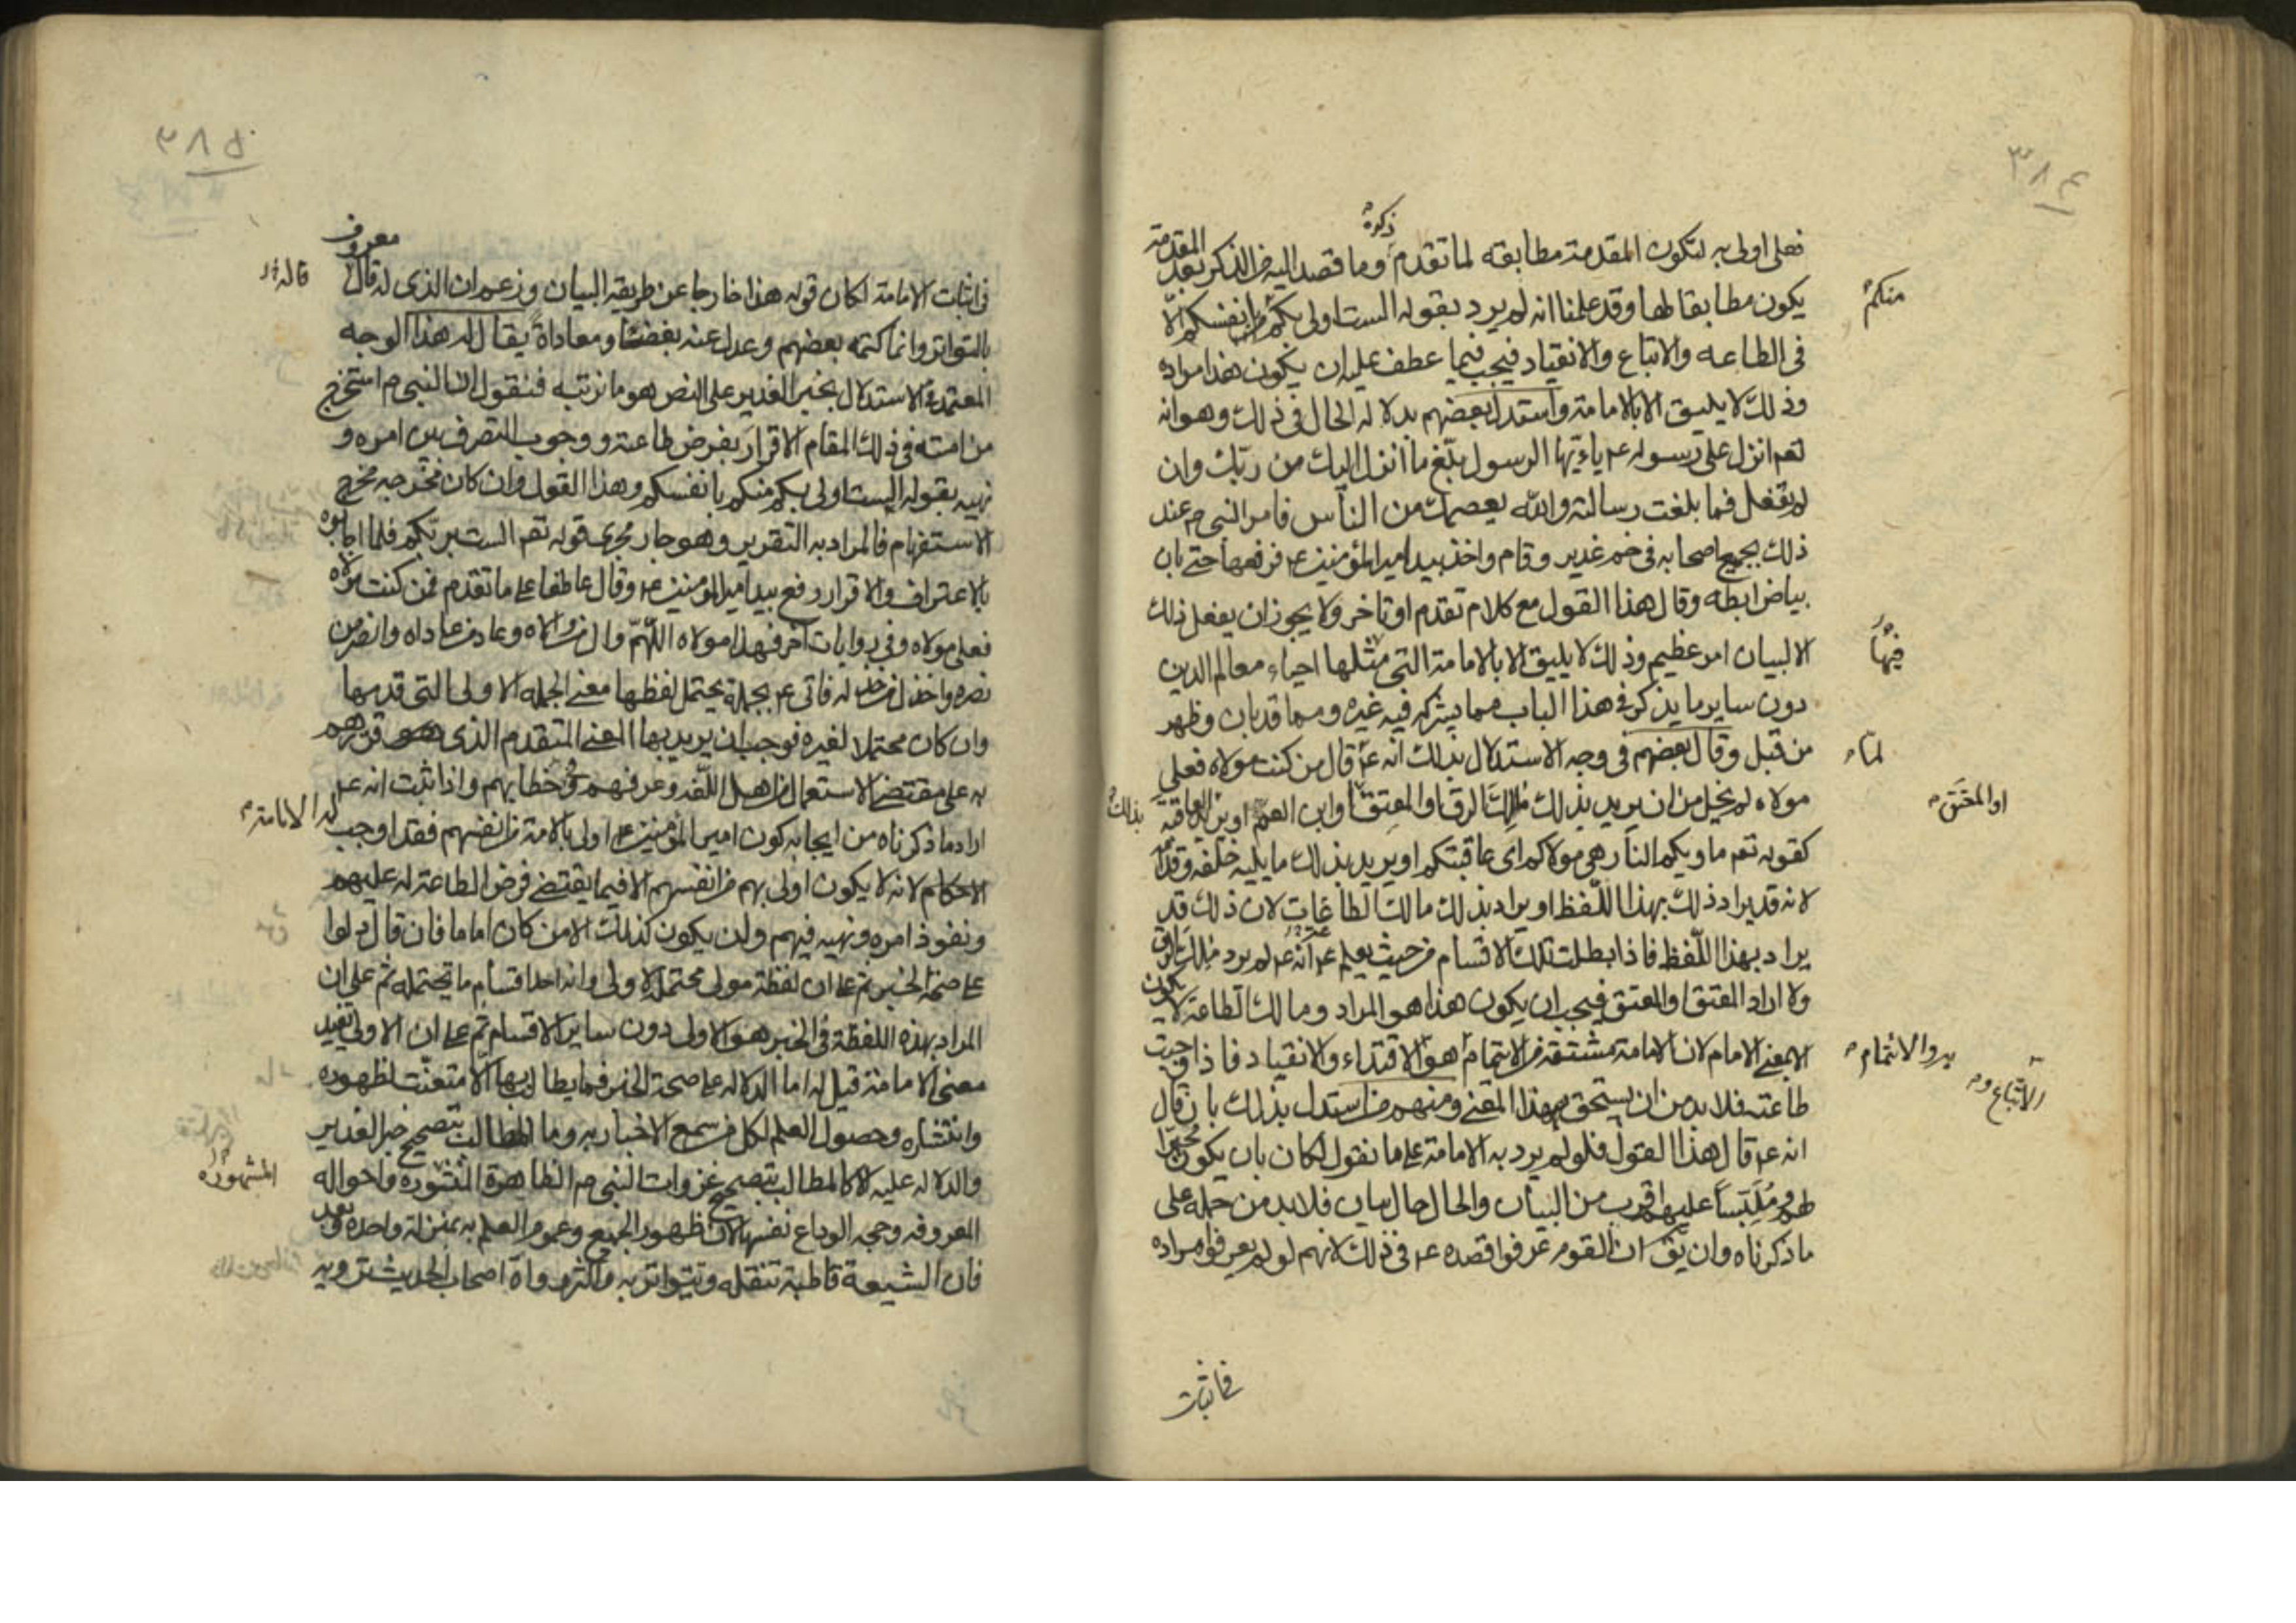 ٣٨٤
فعلى اولى به لتكون المقدمة مطابقه لما تقدم ذكره وما قصد اليه من الذكر بعد المقدمة
يكون مطابقا لها وقد علمنا انه لم يرد بقوله الست اولى بكم منكم بانفسكم الّا
في الطاعه والاتباع والانقياد فيجب فيما عطف عليه ان يكون هذا مراده
وذلك لا يليق الا بالامامة واستدل بعضهم بدلاله الحال في ذلك وهو انه
تعم انزل على رسوله عم ياءيها الرسول بلّغ ما انزل اليك من ربّك وان
لم تفعل فما بلغت رسالته والله يعصمك من الناس فامر النبي م عند
ذلك بجمع اصحابه في خم غدير وقام واخذ بيد امير المؤمنين عم فرفعها حتى بان
بياض ابطه وقال هذا القول مع كلام تقدم او تاخر ولا يجوز ان يفعل ذلك
الا لبيان امر عظيم وذلك لا يليق الا بالامامة التي فيها مثلها احياء معالم الدين
دون ساير ما يذكر في هذا الباب مما يشركه فيه غيره ومما قد بان وظهر
من قبل وقال بعضهم في وجه الاستدلال بذلك انه عم لما قال من كنت مولاه فعلي
مولاه لم يخل من ان يريد بذلك مالك الرق او المعتق او المعتق او ابن العم او يريد بذلك العاقبه
كقوله تعم ماويكم النار هي مولاكم اى عاقبتكم او يريد بذلك ما يليه خلفه وقدامه
لانه قد يراد ذلك بهذا اللّفظ او يراد بذلك مالك الطاعات لان ذلك قد
يراد بهذا اللّفظ فاذا بطلت تلك الاقسام من حيث يعلم انه عم لم يرد مالك الرق
ولا اراد المعتق او المعتق فيجب ان يكون هذا هو المراد ومالك الطاعة لا يكون
الا بمعنى الامام لان الامامة مشتقه من الايتمام به والائتمام هو الاتّباع و الاقتداء والانقياد فاذا وجبت
طاعته فلا بد من ان يستحق بهذا المعنى ومنهم من استدل بذلك بان قال
انه عم قال هذا القول فلو لم يرد به الامامة على ما نقول لكان بان يكون محيّرا
لهم وملبّسا عليهم اقرب من البيان والحال حال بيان فلا بد من حمله على
ما ذكرناه وان يق ان القوم عرفوا قصده عم في ذلك لانهم لو لم يعرفوا مراده
في اثبات
٣٨٥
في اثبات الامامة لكان قوله هذا خارجا عن طريقه البيان وزعم ان الذي له قال قاله معروف
بالتواتر وانما كتمه بعضهم وعدل عنه بغضا ومعاداة يقال له هذا الوجه
المعتمد في الاستدلال بخبر الغدير على النص هو ما نرتبه فنقول ان النبي م استخرج
من امته في ذلك المقام الاقرار بفرض طاعته ووجوب التصرف بين امره و
نهيه بقوله الست اولى بكم منكم بانفسكم وهذا القول وان كان مخرجه مخرج
الاستفهام فالمراد به التقرير وهو جار مجرى قوله تعم الست بربّكم فلما اجابوه
بالاعتراف والاقرار رفع بيد امير المؤمنين عم وقال عاطفا على ما تقدم فمن كنت مولاه
فعلي مولاه وفي روايات اخر فهذا مولاه اللّهمّ وال من والاه وعاد من عاداه وانصر من
نصره واخذل من خذله فاتى عم بجملة يحتمل لفظها معنى الجمله الاولى التي قدمها
وان كان محتملا لغيره فوجب ان يريد بها المعنى المتقدم الذي قررهم
به على مقتضى الاستعمال من اهل اللّغه وعرفهم في خطابهم واذا ثبت انه عم
اراد ما ذكرناه من ايجابه كون امير المؤمنين عم اولى بالامة من انفسهم فقد اوجب له الامامة
الاحكام لانه لا يكون اولى بهم من انفسهم الا فيما يقتضى فرض الطاعة له عليهم
ونفوذ امره ونهيه فيهم ولن يكون كذلك الا من كان اماما فان قال دلوا
على صحة الخبر ثم على ان لفظة مولى محتملة لاولى وانه احد اقسام ما يحتمله ثم على ان
المراد بهذه اللفظة في الخبر هو الاولى دون ساير الاقسام ثم على ان الاولى يفيد
معنى الامامة قيل له اما الدلاله على صحة الخبر فما يطالب بها الّا متعنّت لظهوره
وانتشاره وحصول العلم لكل من سمع الاخبار به وما المطالب بتصحيح خبر الغدير
والدلاله عليه الا كالمطالب بتصحيح غزوات النبي م الظاهرة المنثوره المشهوره واحواله
المعروفه وحجه الوداع نفسها لان ظهور الجميع وعموم العلم به بمنزلة واحده وبعد
فان الشيعة قاطبة تنقله وتتواتر به واكثر رواة اصحاب الحديث ترويه